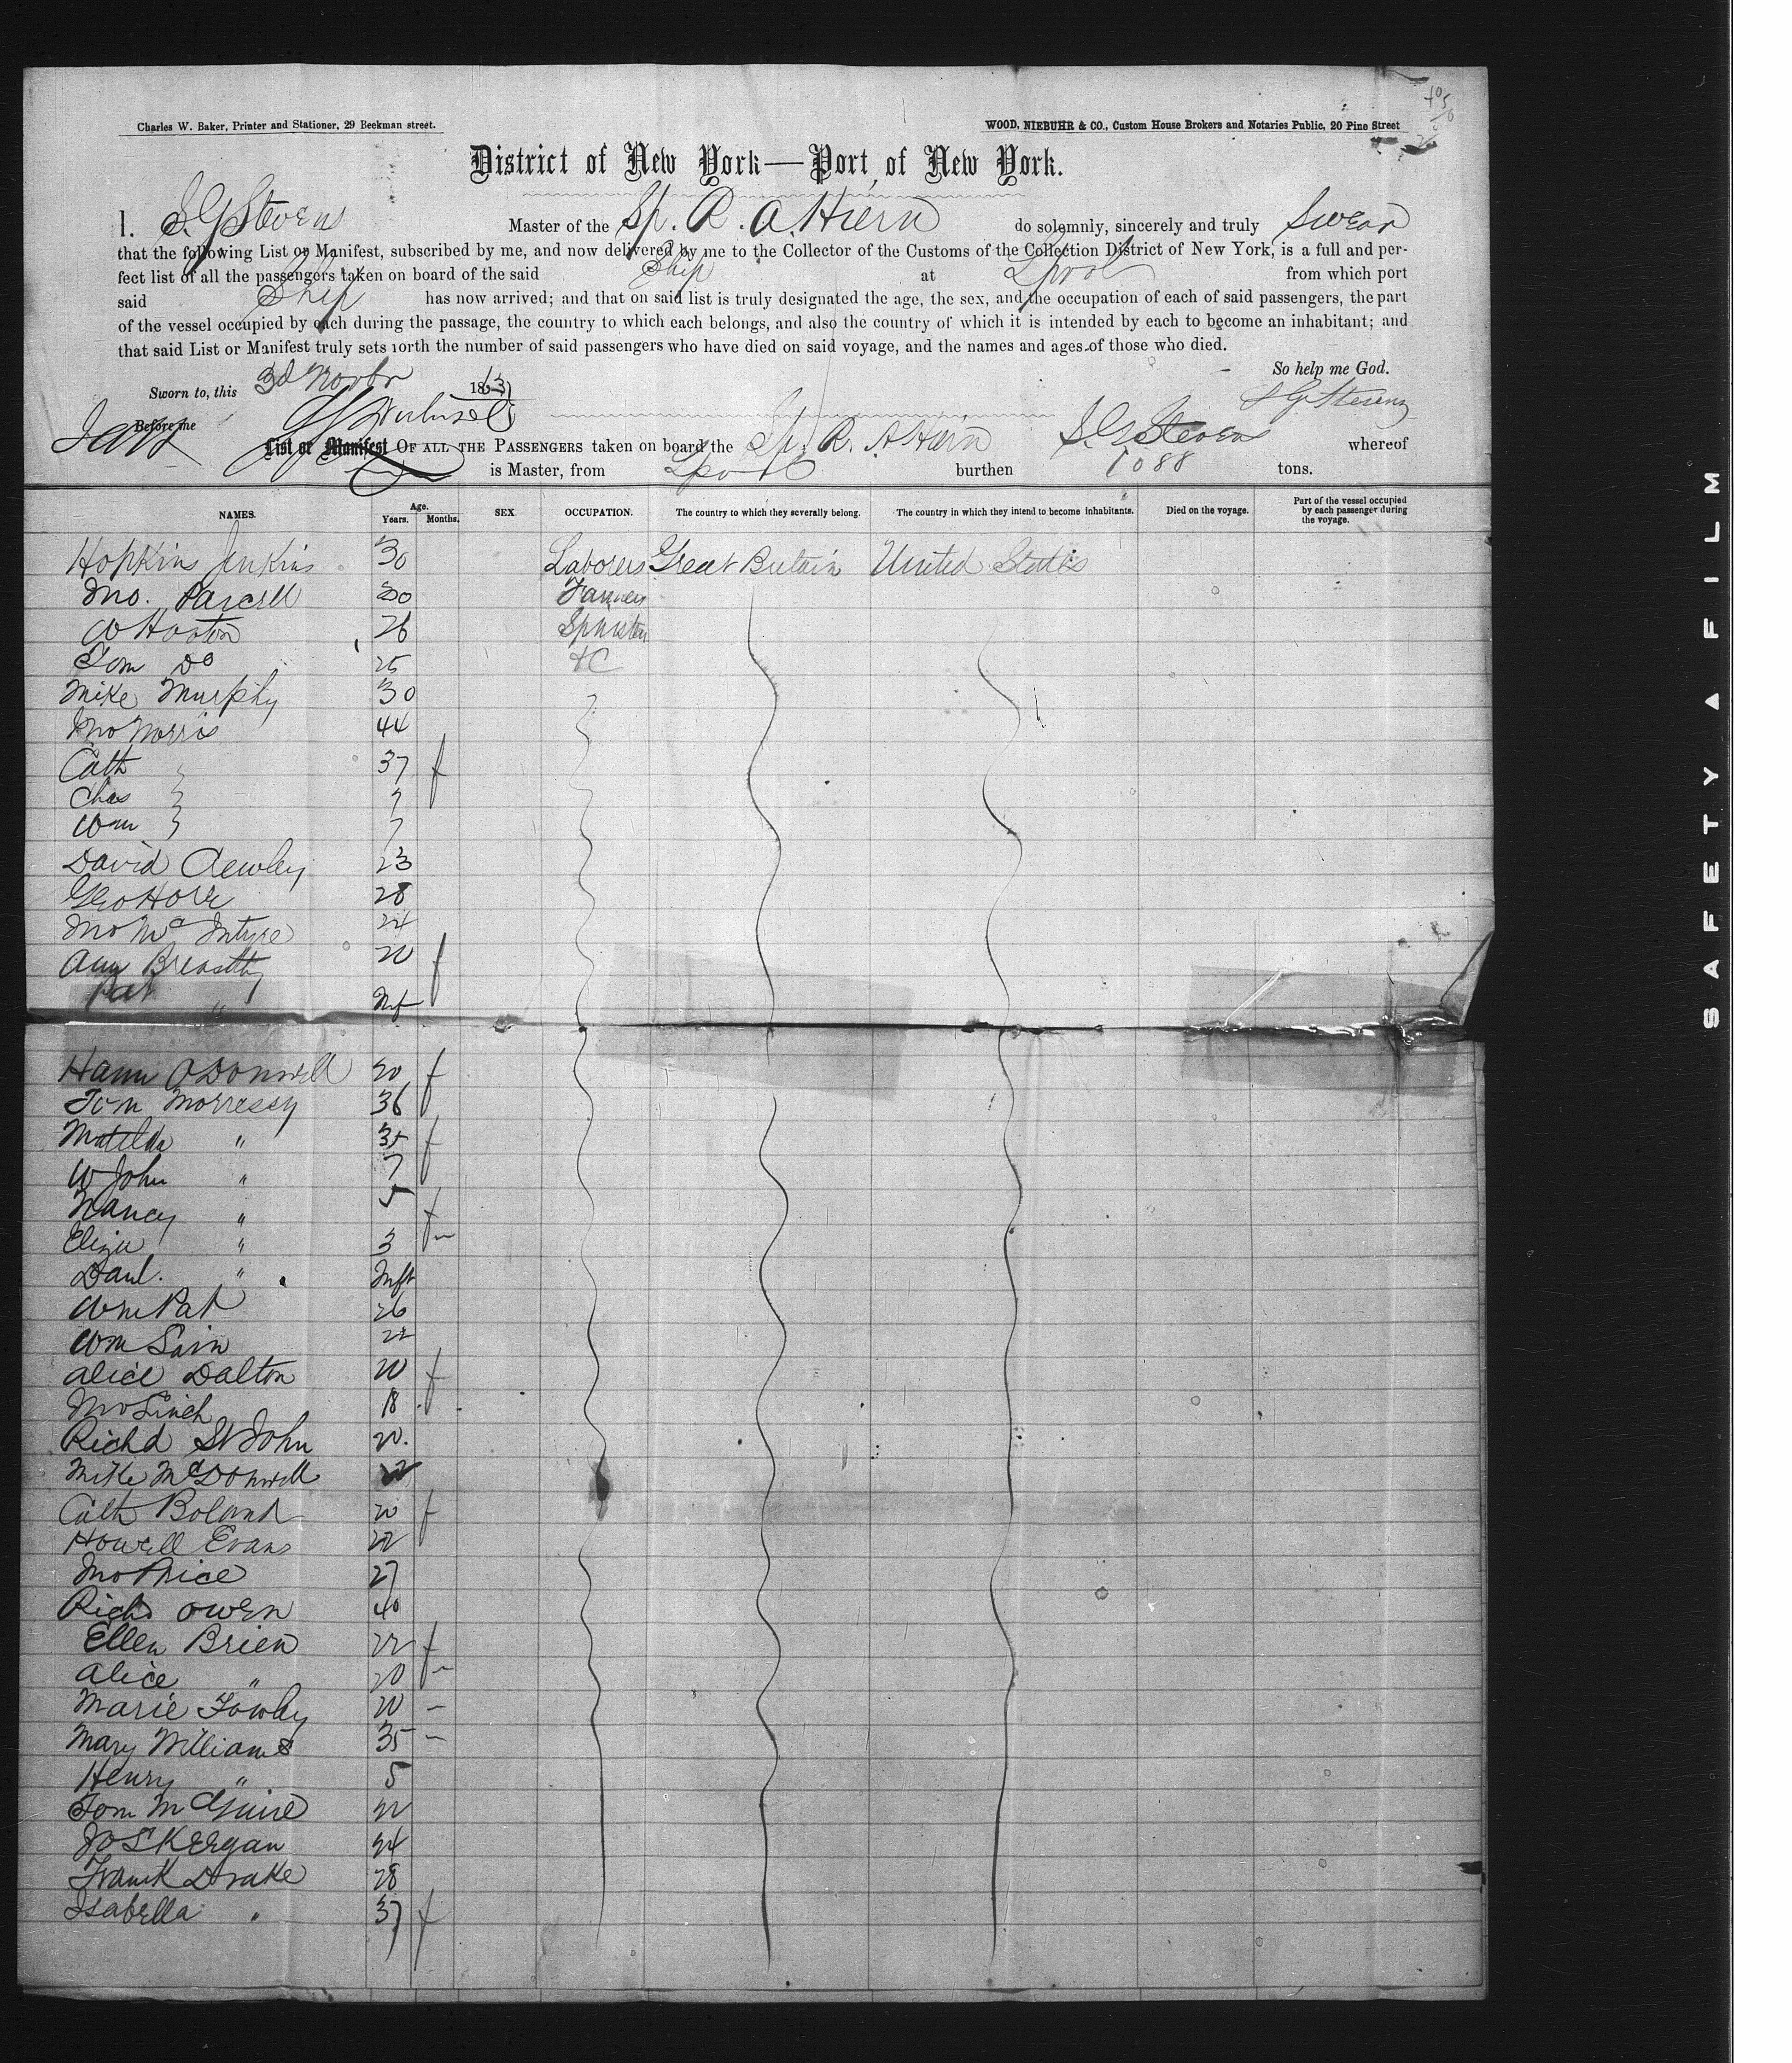 Charles W. Baker, Printer and Stationer, 29 Beekman street.
WOOD, NIEBUHR & CO., Custom House Brokers and Notaries Public, 20 Pine Street
District of New York—Port of New York.
I. S. G. Stevens Master of the Sp. R. A. Hiern do solemnly, sincerely and truly Swear
that the following List or Manifest, subscribed by me, and now delivered by me to the Collector of the Customs of the Collection District of New York, is a full and per-
fect list of all the passengers taken on board of the said Ship at Lpool from which port
said Ship has now arrived; and that on said list is truly designated the age, the sex, and the occupation of each of said passengers, the part
of the vessel occupied by each during the passage, the country to which each belongs, and also the country of which it is intended by each to become an inhabitant; and
that said List or Manifest truly sets forth the number of said passengers who have died on said voyage, and the names and ages of those who died.
So help me God.
Sworn to, this 3d Novbr 1863
S G Stevens
Before me
List or Manifest OF ALL THE PASSENGERS taken on board the Sp. R. A Hiern S. G. Stevens whereof
is Master, from Lpool burthen 1088 tons.
NAMES. Age. Years. Months. SEX. OCCUPATION. The country to which they severally belong. The country in which they intend to become inhabitants. Died on the voyage. Part of the vessel occupied by each passenger during the voyage.
Hopkins Jenkins 30 Laborers Great Britain United States
Jno. Parcell 30
W Hooton 26
Tom Do 25 &C
Mike Murphy 30
Jno Norris 44
Cath 37 f
Chas 7
Wm 7
David 23
Geo Horr 28
Jno Mc Intyre 24
Ann 20 f
Pat " Inf
Hann ODonnell 20 f
Tom Morressy 36
Matilda " 35 f
W John " 7
Nancy " 5 f
Eliza " 3
Danl. " Inft
Wm Pat 26
Wm 22
Alice Dalton 20 f
Jno 18
Richd St John 20.
Mike McDonnell
Cath Boland 20 f
Howell Evans 22
Jno Price 27
Richd Owen 40
Ellen Brien 22 f
Alice " 20
Marie 20 –
Mary Williams 35 –
Henry " 5
Tom McGuire 22
Jos Keegan 24
Frank Drake 28
Isabella " 37 f
SAFETY ▲ FILM